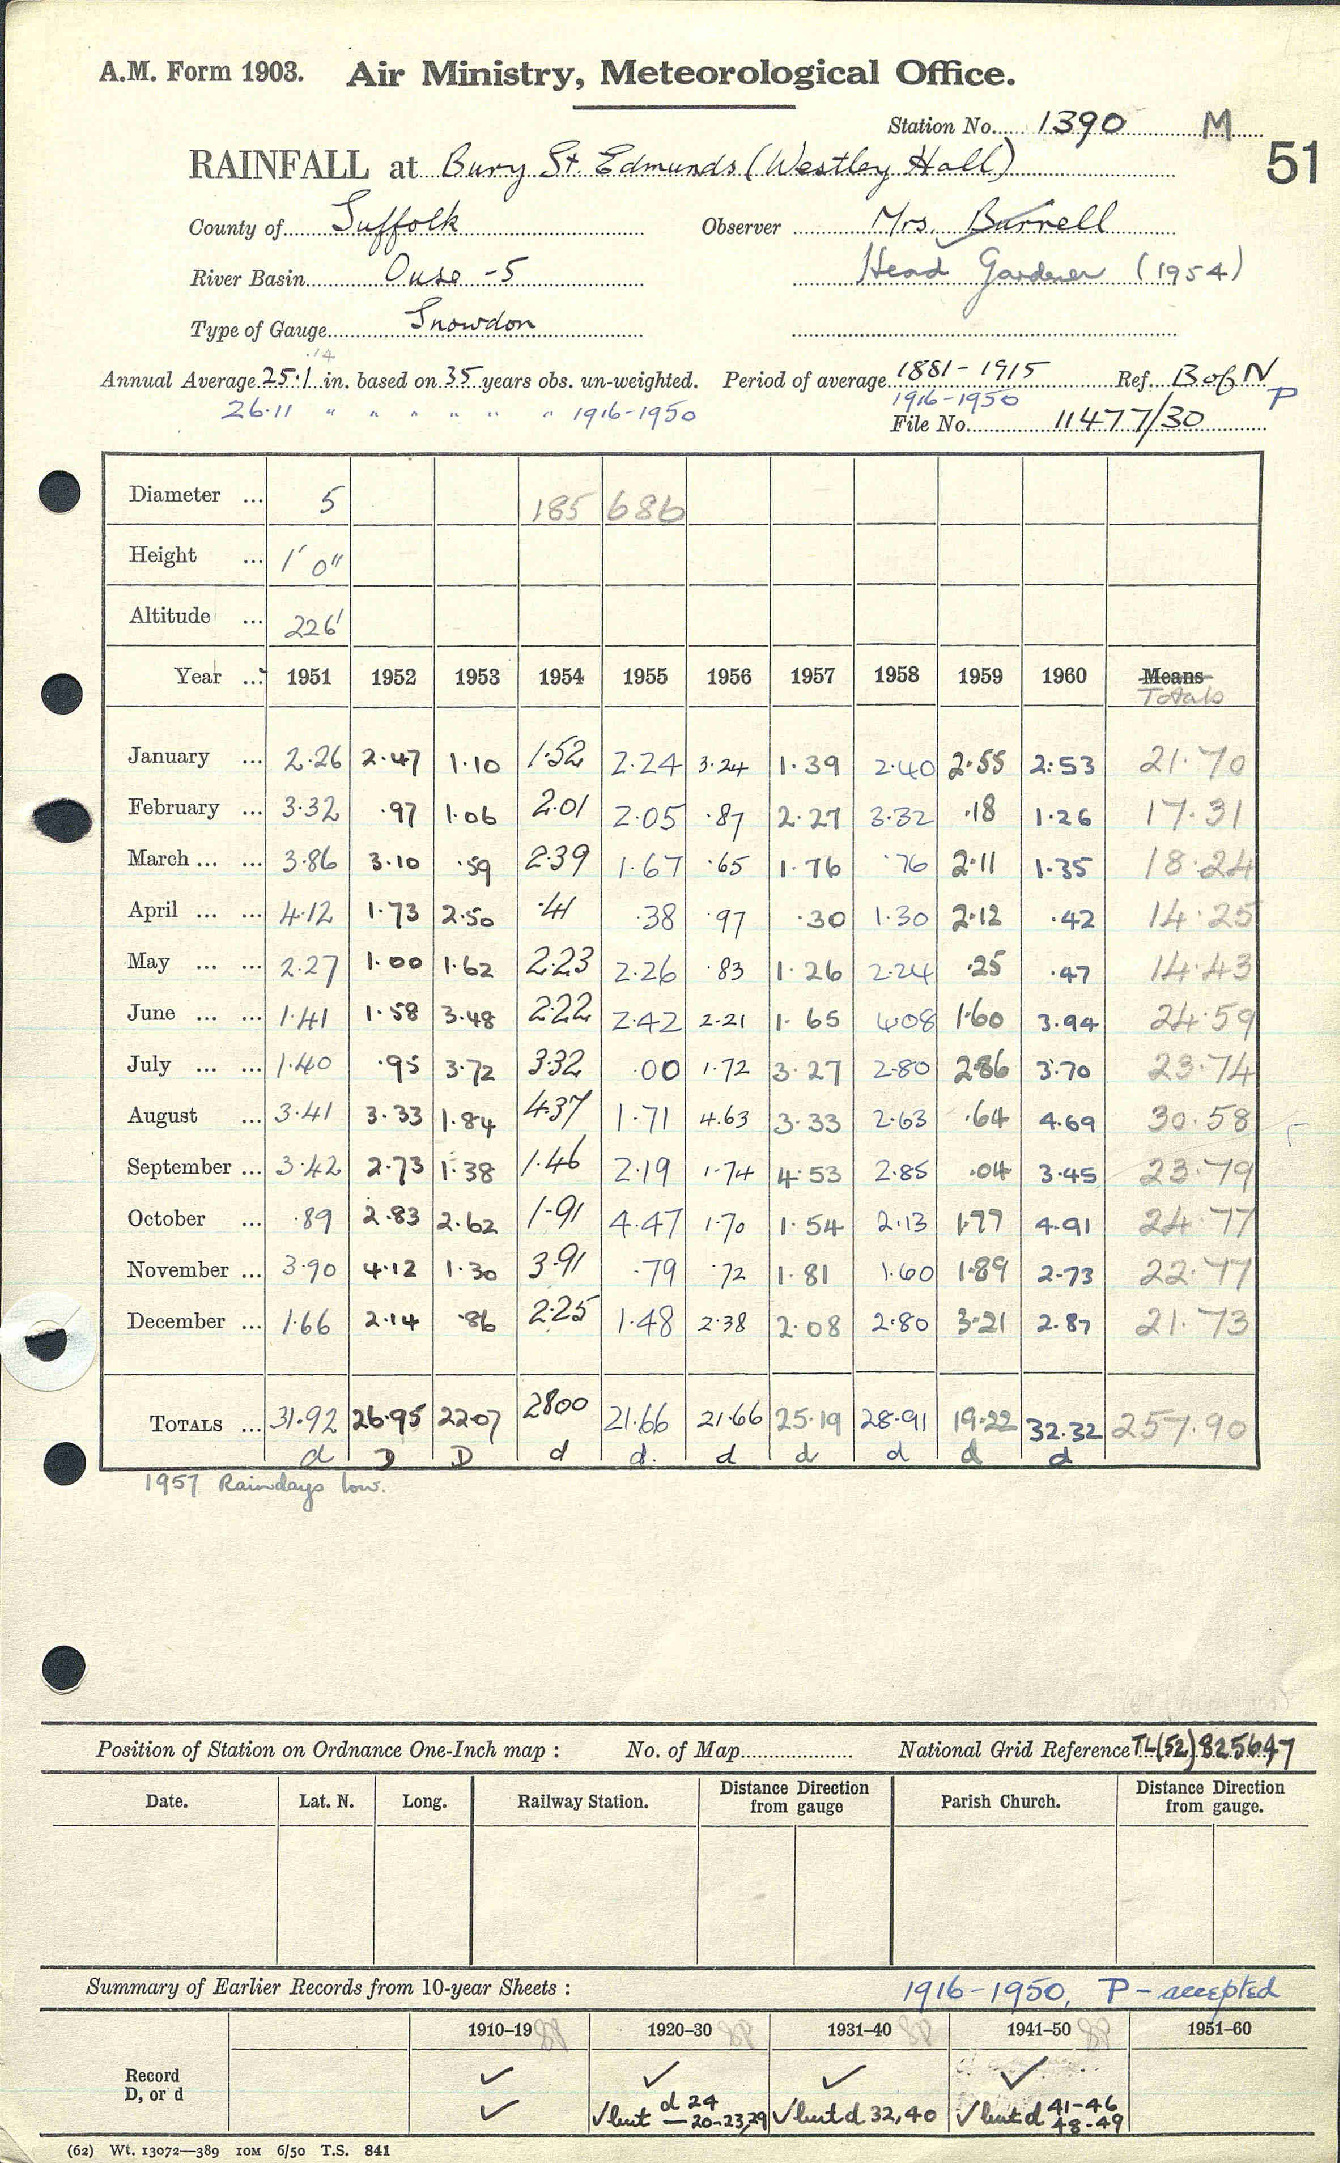 A.M. Form 1903. Air Ministry, Meteorological Office.
Station No. 1390 M
51
RAINFALL at Bury St. Edmunds (Westley Hall)
County of Suffolk Observer Mrs. Burrell
River Basin Ouse -5 Head Gardener (1954)
Type of Gauge Snowdon
.14
Annual Average 25.1 in. based on 35 years obs. un-weighted. Period of average 1881-1915 Ref. B of N
26.11 " " " " " " 1916-1950 1916-1950 P
File No. 11477/30
Diameter ... 5 185 686
Height ... 1' 0"
Altitude ... 226'
Year ... 1951 1952 1953 1954 1955 1956 1957 1958 1959 1960 Means
Totals
January ... 2.26 2.47 1.10 1.52 2.24 3.24 1.39 2.40 2.55 2.53 21.70
February ... 3.32 .97 1.06 2.01 2.05 .87 2.27 3.32 .18 1.26 17.31
March ... ... 3.86 3.10 .59 2.39 1.67 .65 1.76 .76 2.11 1.35 18.24
April ... ... 4.12 1.73 2.50 .41 .38 .97 .30 1.30 2.12 .42 14.25
May ... ... 2.27 1.00 1.62 2.23 2.26 .83 1.26 2.24 .25 .47 14.43
June ... ... 1.41 1.58 3.48 2.22 2.42 2.21 1.65 4.08 1.60 3.94 24.59
July ... ... 1.40 .95 3.72 3.32 .00 1.72 3.27 2.80 2.86 3.70 23.74
August ... 3.41 3.33 1.84 4.37 1.71 4.63 3.33 2.63 .64 4.69 30.58
September ... 3.42 2.73 1.38 1.46 2.19 1.74 4.53 2.85 .04 3.45 23.79
October ... .89 2.83 2.62 1.91 4.47 1.70 1.54 2.13 1.77 4.91 24.77
November ... 3.90 4.12 1.30 3.91 .79 .72 1.81 1.60 1.89 2.73 22.77
December ... 1.66 2.14 .86 2.25 1.48 2.38 2.08 2.80 3.21 2.87 21.73
TOTALS ... 31.92 26.95 22.07 28.00 21.66 21.66 25.19 28.91 19.22 32.32 257.90
d D D d d. d d d d d
1957 Raindays low.
Position of Station on Ordnance One-Inch map : No. of Map National Grid Reference TL(52)825647
Date. Lat. N. Long. Railway Station. Distance from gauge Direction Parish Church. Distance from gauge. Direction
Summary of Earlier Records from 10-year Sheets : 1916-1950, P - accepted
1910-19 1920-30 1931-40 1941-50 1951-60
Record ✓ ✓ ✓ ✓
D, or d ✓ ✓ but d 24 — 20-23,29 ✓ but d 32,40 ✓ but d 41-46 48-49
(62) Wt. 13072—389 10M 6/50 T.S. 841